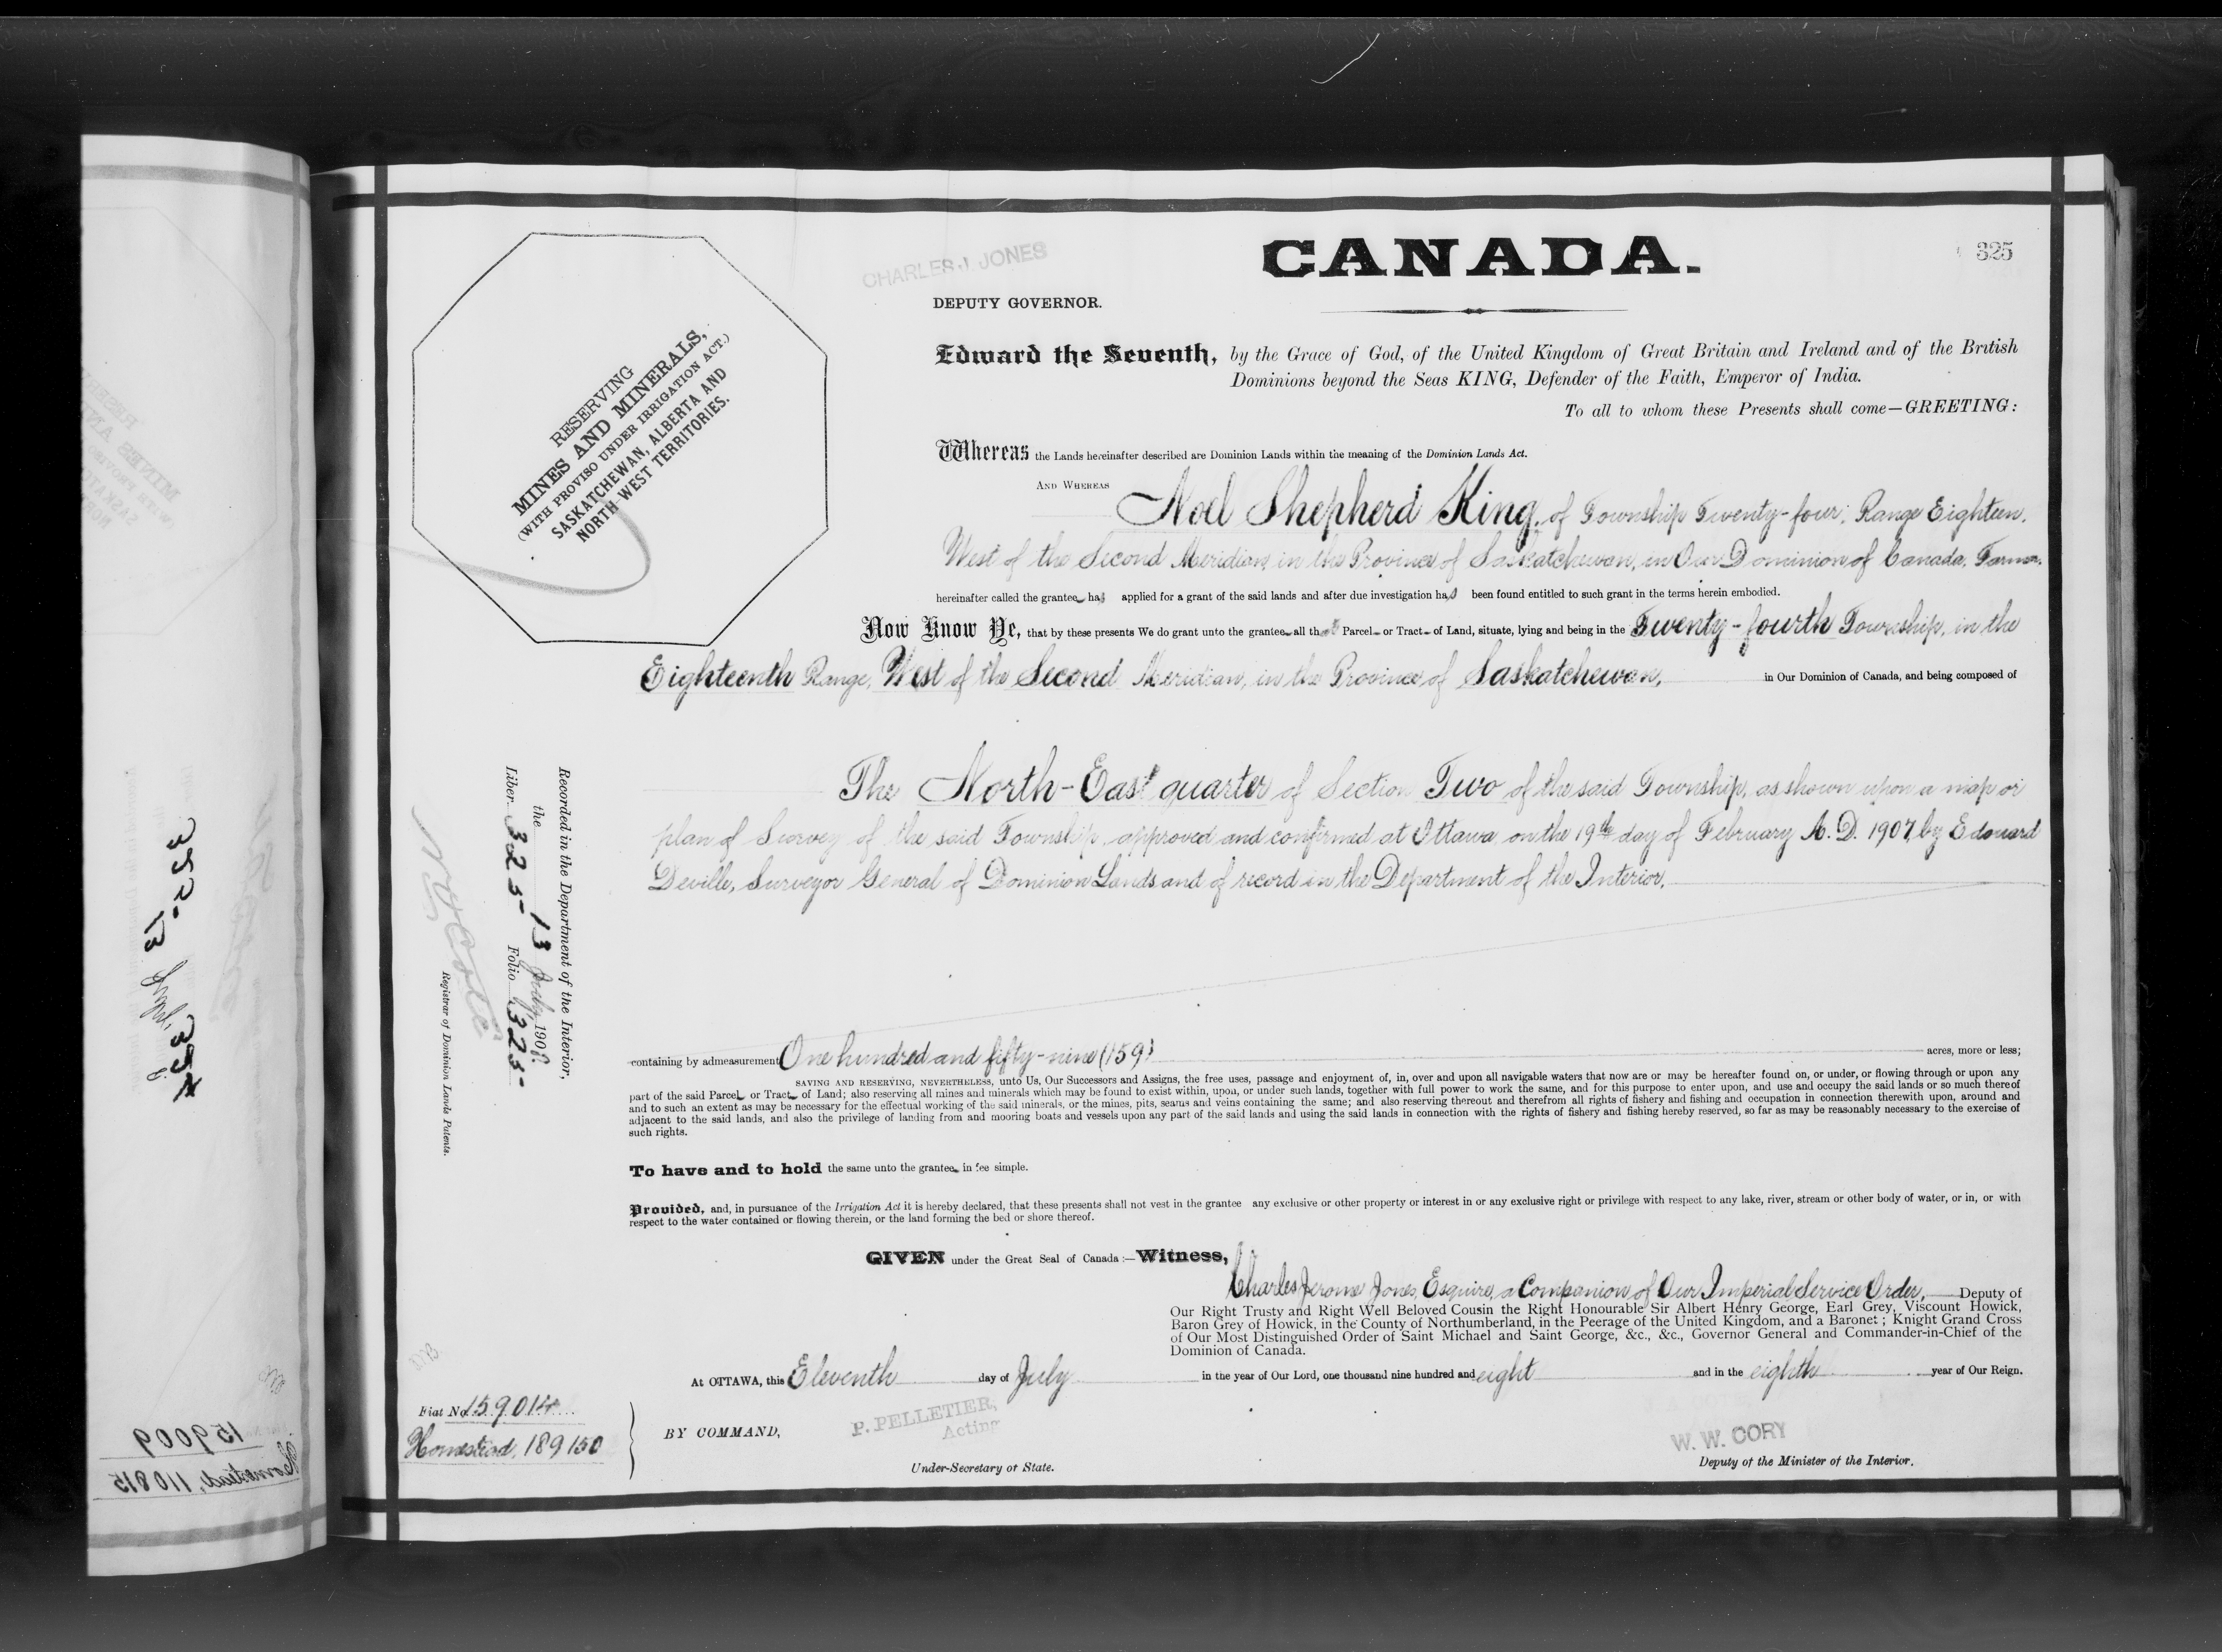 CHARLES J. JONES
CANADA.
325
DEPUTY GOVERNOR.
Edward the Seventh, by the Grace of God, of the United Kingdom of Great Britain and Ireland and of the British
Dominions beyond the Seas KING, Defender of the Faith, Emperor of India.
To all to whom these Presents shall come—GREETING:
RESERVING
MINES AND MINERALS,
(WITH PROVISO UNDER IRRIGATION ACT.)
SASKATCHEWAN, ALBERTA AND
NORTH-WEST TERRITORIES.
Whereas the Lands hereinafter described are Dominion Lands within the meaning of the Dominion Lands Act.
AND WHEREAS Noel Shepherd King, of Township Twenty-four, Range Eighteen,
West of the Second Meridian, in the Province of Saskatchewan, in Our Dominion of Canada, Farmer,
hereinafter called the grantee has applied for a grant of the said lands and after due investigation has been found entitled to such grant in the terms herein embodied.
Now Know Ye, that by these presents We do grant unto the grantee all that Parcel or Tract of Land, situate, lying and being in the Twenty-fourth Township, in the
Eighteenth Range, West of the Second Meridian, in the Province of Saskatchewan, in Our Dominion of Canada, and being composed of
The North-East quarter of Section Two of the said Township, as shown upon a map or
plan of Survey of the said Township approved and confirmed at Ottawa, on the 19th day of February A.D. 1907, by Edouard
Deville, Surveyor General of Dominion Lands and of record in the Department of the Interior,
Recorded in the Department of the Interior,
the 13 July 1908.
Liber 325 Folio 325
Registrar of Dominion Lands Patents.
containing by admeasurement One hundred and fifty-nine (159) acres, more or less;
SAVING AND RESERVING, NEVERTHELESS, unto Us, Our Successors and Assigns, the free uses, passage and enjoyment of, in, over and upon all navigable waters that now are or may be hereafter found on, or under, or flowing through or upon any
part of the said Parcel or Tract of Land; also reserving all mines and minerals which may be found to exist within, upon, or under such lands, together with full power to work the same, and for this purpose to enter upon, and use and occupy the said lands or so much thereof
and to such an extent as may be necessary for the effectual working of the said minerals, or the mines, pits, seams and veins containing the same; and also reserving thereout and therefrom all rights of fishery and fishing and occupation in connection therewith upon, around and
adjacent to the said lands, and also the privilege of landing from and mooring boats and vessels upon any part of the said lands and using the said lands in connection with the rights of fishery and fishing hereby reserved, so far as may be reasonably necessary to the exercise of
such rights.
To have and to hold the same unto the grantee in fee simple.
Provided, and, in pursuance of the Irrigation Act it is hereby declared, that these presents shall not vest in the grantee any exclusive or other property or interest in or any exclusive right or privilege with respect to any lake, river, stream or other body of water, or in, or with
respect to the water contained or flowing therein, or the land forming the bed or shore thereof.
GIVEN under the Great Seal of Canada :—Witness,
Charles Jerome Jones, Esquire, a Companion of Our Imperial Service Order, Deputy of
Our Right Trusty and Right Well Beloved Cousin the Right Honourable Sir Albert Henry George, Earl Grey, Viscount Howick,
Baron Grey of Howick, in the County of Northumberland, in the Peerage of the United Kingdom, and a Baronet ; Knight Grand Cross
of Our Most Distinguished Order of Saint Michael and Saint George, &c., &c., Governor General and Commander-in-Chief of the
Dominion of Canada.
At OTTAWA, this Eleventh day of July in the year of Our Lord, one thousand nine hundred and eight and in the eighth year of Our Reign.
Fiat No 159014
Homestead, 189150
BY COMMAND,
P. PELLETIER,
Acting
Under-Secretary of State.
W. W. CORY
Deputy of the Minister of the Interior.
159009
Homestead, 110815